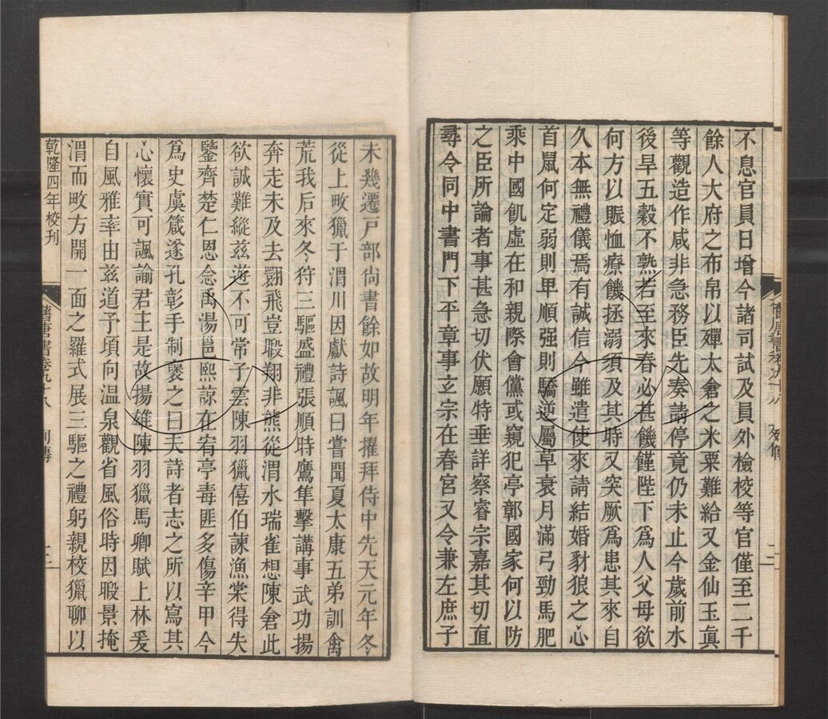 不息官員日增今諸司試及員外檢校等官僅至二千
餘人大府之布帛以殫太倉之米粟難給又金仙玉眞
等觀造作咸非急務臣先奏請停竟仍未止今歲前水
後旱五穀不熟若至來春必甚饑僅陛下爲人父母欲
何方以賑恤療饑拯溺須及其時又突厥爲患其來自
久本無禮儀焉有誠信今雖遣使來請結婚豺狼之心
首鼠何定弱則卑順强則驕逆屬草衰月滿弓勁馬肥
乘中國飢虛在和親際會儻或窺犯亭鄣國家何以防
之臣所論者事甚急切伏願特垂詳察睿宗嘉其切直
尋令同中書門下平章事玄宗在春宮又令兼左庶子
未幾遷戸部尙書餘如故明年擢拜侍中先天元年冬
從上畋獵于渭川因獻詩諷曰嘗聞夏太康五弟訓禽
荒我后來冬狩三驅盛禮張順時鷹隼擊講事武功揚
奔走未及去翾飛豈暇翔非熊從渭水瑞雀想陳倉此
欲誠難縱茲遊不可常子雲陳羽獵僖伯諫漁棠得失
鑒齊楚仁恩念禹湯邕熙諒在宥亭毒匪多傷辛甲今
爲史虞箴遂孔彰手制襃之曰夫詩者志之所以寫其
心懷實可諷諭君主是故揚雄陳羽獵馬卿賦上林爰
自風雅率由茲道予頃向溫泉觀省風俗時因暇景掩
渭而畋方開一面之羅式展三驅之禮躬親校獵聊以
乾隆四年校刊
舊唐書卷九十八 列傳